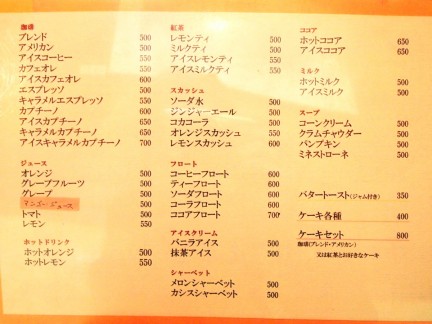 珈琲
ブレンド 500
アメリカン 500
アイスコーヒー 500
カフェオレ 550
アイスカフェオレ 600
エスプレッソ 500
キャラメルエスプレッソ 550
カプチーノ 600
アイスカプチーノ 650
キャラメルカプチーノ 650
アイスキャラメルカプチーノ 700
ジュース
オレンジ 500
グレープフルーツ 500
グレープ 500
マンゴージュース
トマト 500
レモン 550
ホットドリンク
ホットオレンジ 500
ホットレモン 550
紅茶
レモンティ 500
ミルクティ 500
アイスレモンティ 500
アイスミルクティ 550
スカッシュ
ソーダ水 500
ジンジャーエール 500
コカコーラ 500
オレンジスカッシュ 550
レモンスカッシュ 600
フロート
コーヒーフロート 600
ティーフロート 600
ソーダフロート 600
コーラフロート 600
ココアフロート 700
アイスクリーム
バニラアイス 500
抹茶アイス 500
シャーベット
メロンシャーベット 500
カシスシャーベット 500
ココア
ホットココア 650
アイスココア 650
ミルク
ホットミルク 500
アイスミルク 500
スープ
コーンクリーム 500
クラムチャウダー 500
パンプキン 500
ミネストローネ 500
バタートースト(ジャム付き) 350
ケーキ各種 400
ケーキセット 800
珈琲(ブレンド・アメリカン)
又は紅茶とお好きなケーキ